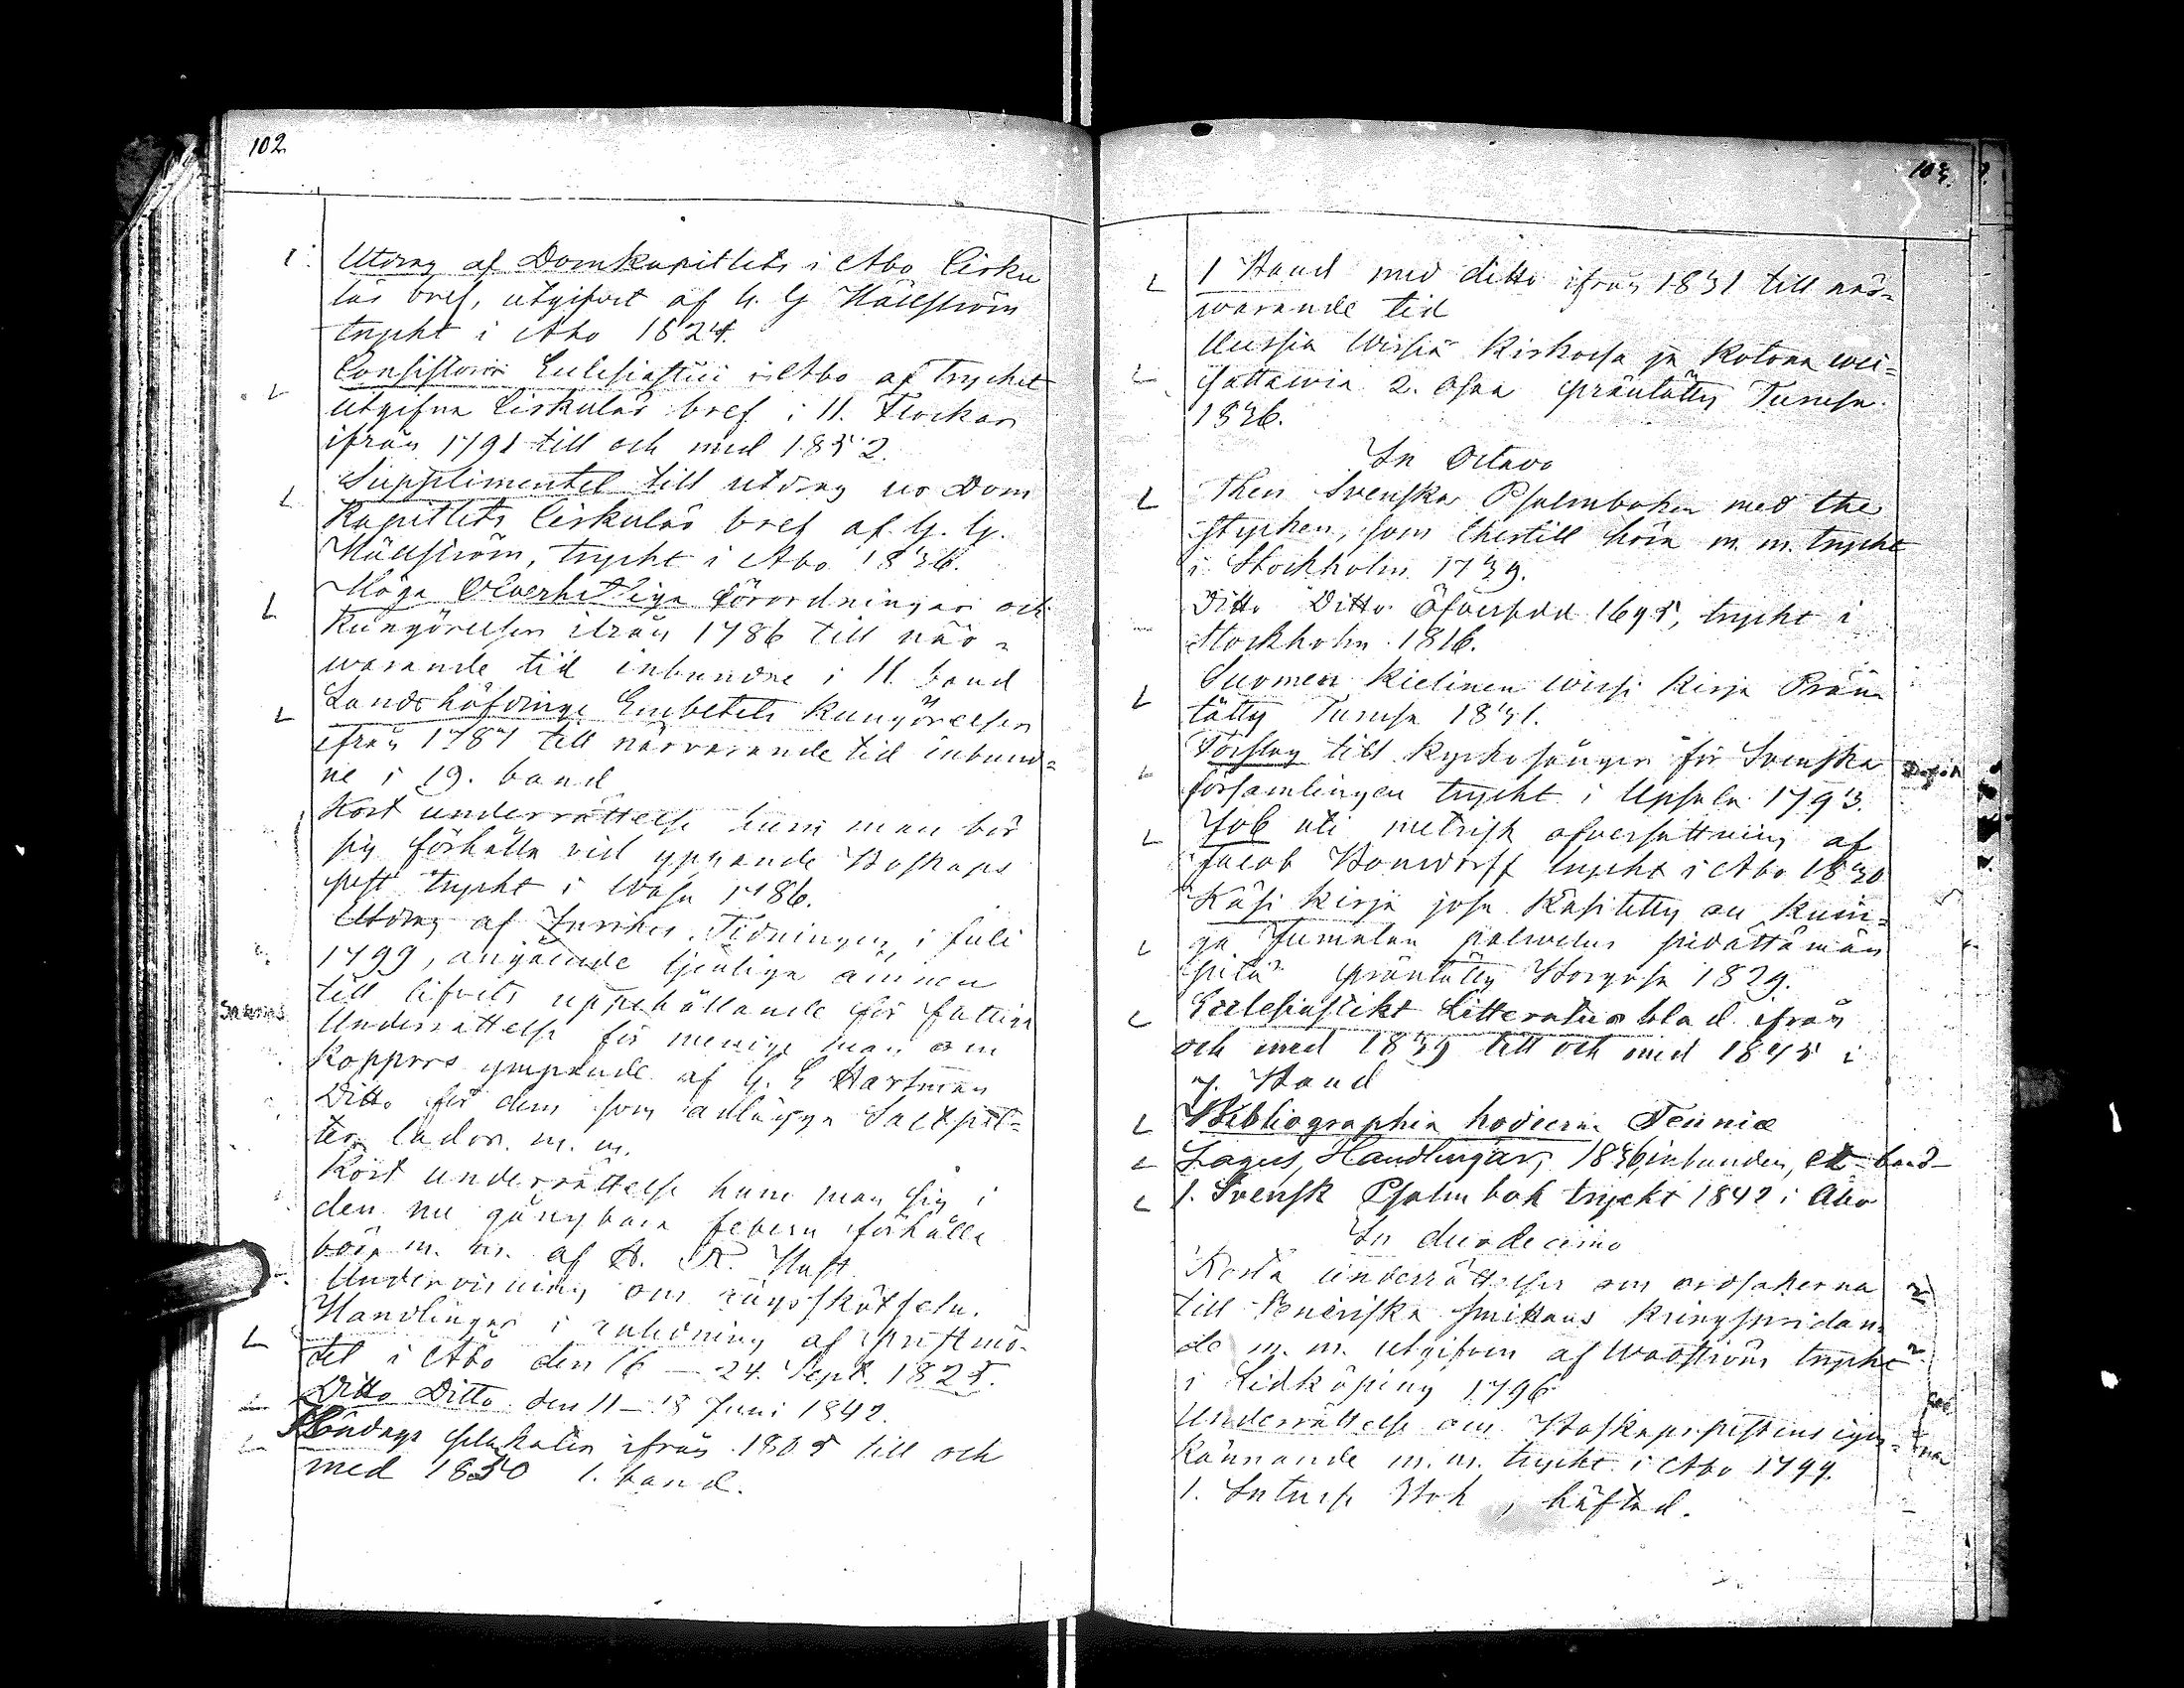 102
Utdrag af Domkapitlets i Abo Cirku
lär bref, utgifvet af G. G Hällström
tryckt i Abo 1824.
Consistorii Eclesiastici i Abo af trycket
utgifna Cirkulär bref i 11. Flockar
ifrån 1791 till och med 1852.
Supplimentet till utdrag ur Dom
Kapitlets Cirkulär bref af G. G.
Hällström, tryckt i Abo 1836.
Höga Överhetliga förordningar och
Kungörelser ifrån 1786 till när=
warande tid inbundne i 11. band
Landshöfdinge Embetets kungörelser
ifrån 1787 till närvarande tid inbund=
ne i 19. band
Kort underrättelse huru man bör
sig förhålla vid yppande Boskaps
pest tryckt i Wasa 1786.
Utdrag af Inrikes Tidningen i Juli
1799, angående tjenliga ämnen
till lifvets uppehållande för fattiga
Saknas
Underrättelse för menige man om
Koppors ympande af G. E Hartman
Ditto för dem som anlägga Saltpet=
ter lador. m. m.
Kort underrättelse huru man sig i
den nu gångbara febern förhålla
bör m. m. af
Undervisning om rågsskötseln.
Handlingar i anledning af Prestmö-
tet i Abo den 16 — 24. Sept. 1825.
Ditto Ditto den 11 — 18 Juni 1842.
Böndags plakater ifrån 1805 till och
med 1850 1. band.
103.
1 Band med ditto ifrån 1831 till när=
warande tid
Uussia Wissiä Kirkossa ja Kotona wei=
sattawia 2. osaa präntätty Turusa
1836.
In Octavo
Then Svenska Psalmboken med the
stycken, som thertill höra m. m. tryckt
i Stockholm 1739.
Ditto Ditto Öfversedd 1695, tryckt i
Stockholm 1816.
Suomen Kielinen wirsi Kirja Prän
tätty Turusa 1831.
Förslag till kyrkosånger för Svenska
församlingen tryckt i Upsala 1793.
Job uti metrisk öfversättning af
Jacob Bonsdorff tryckt i Abo 1830
Käsi Kirja josa Käsitetty on kuin=
ga Jumalan palwelus pidättämän
pitä präntätty Borgosa 1829.
Ecclesiastikt Litteratur blad ifrån
och med 1839 till och med 1845 i
7. Band
Bibliographia hodierna Fennia
Lagus, Handlingar, 1836, inbunden, ett band
1. Svensk Psalmbok tryckt 1842 i Abo
In duodecimo
Korta underrättelser om ordsakerna
till Veneriska smittans kringspridan=
de m. m. utgifven af Wadström tryckt
i Lidköping 1796
Underrättelse om Boskapspestens igen=
kännande m. m. tryckt i Abo 1799.
1. Bok, häftad.